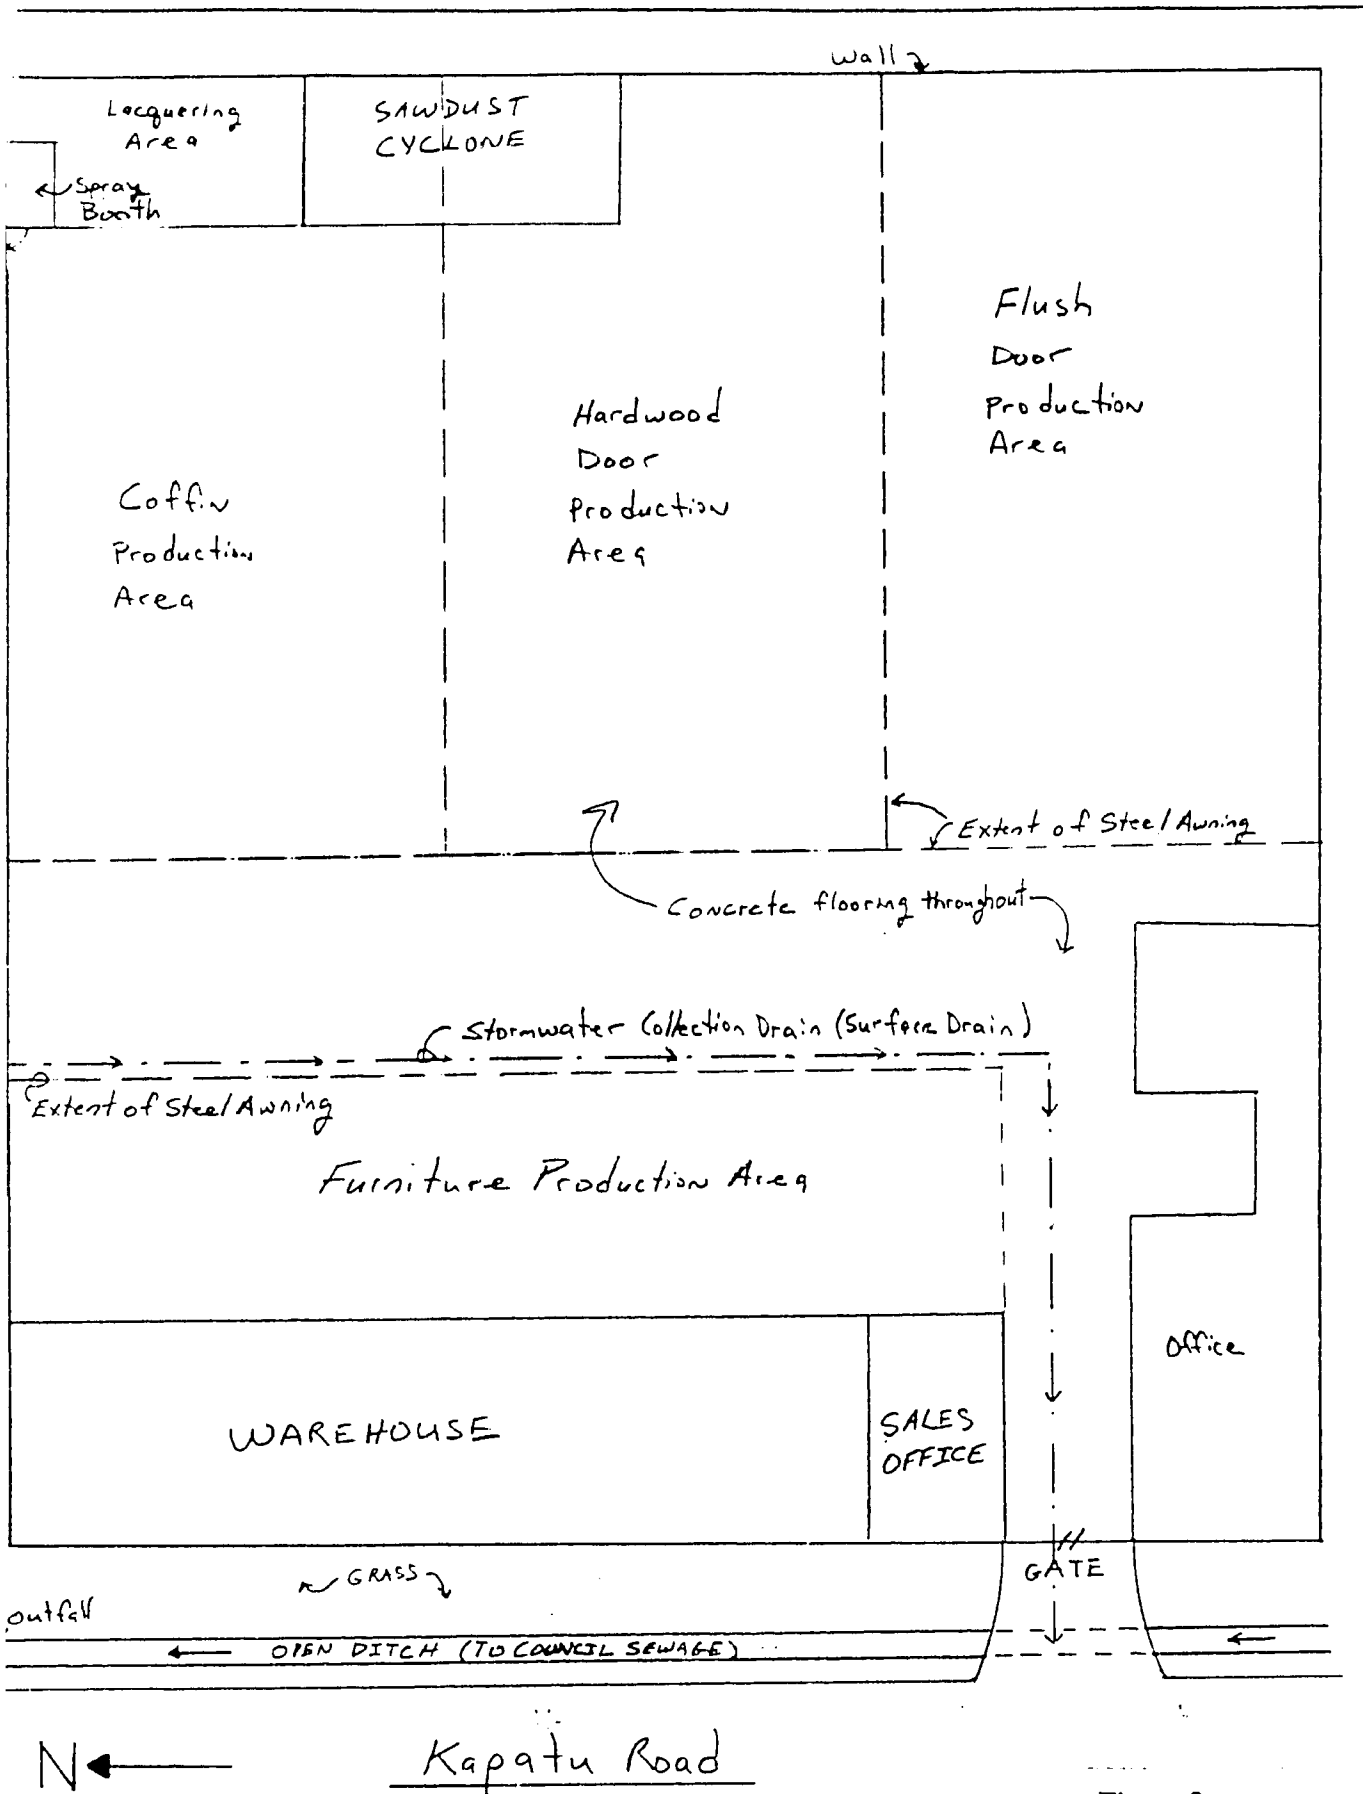 Wall
Lacquering
Area
SAWDUST
CYCLONE
Spray
Booth
Flush
Door
Production
Area
Hardwood
Door
Production
Area
Coffin
Production
Area
Extent of Steel Awning
Concrete flooring throughout
Stormwater Collection Drain (Surface Drain)
Extent of Steel Awning
Furniture Production Area
Office
WAREHOUSE
SALES
OFFICE
GATE
GRASS
outfall
OPEN DITCH (TO COUNCIL SEWAGE)
N
Kapatu Road